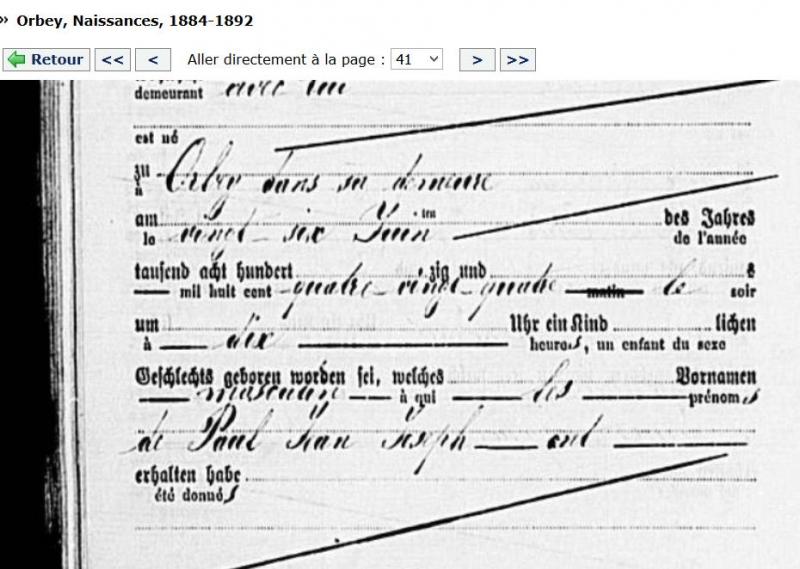 » Orbey, Naissances, 1884-1892
Retour << < Aller directement à la page : 41 > >>
demeurant avec lui
est né
zu
à Orbey dans sa demeure
am ten des Jahres
le vingt six Juin de l'année
tausend acht hundert zig und s
mil huit cent quatre-vingt-quatre matin le soir
um Uhr ein Kind lichen
à dix heures, un enfant du sexe
Geschlechts geboren worden sei, welches Vornamen
masculin à qui les prénoms
de Paul Jean Joseph ont
erhalten habe
été donnés